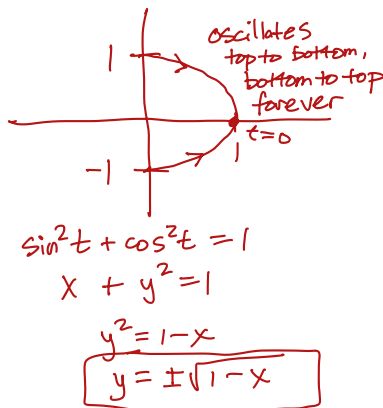 oscillates
1
top to bottom,
bottom to top
forever
t=0
1
-1
sin²t + cos²t = 1
x + y² = 1
y² = 1-x
y = ±√(1-x)